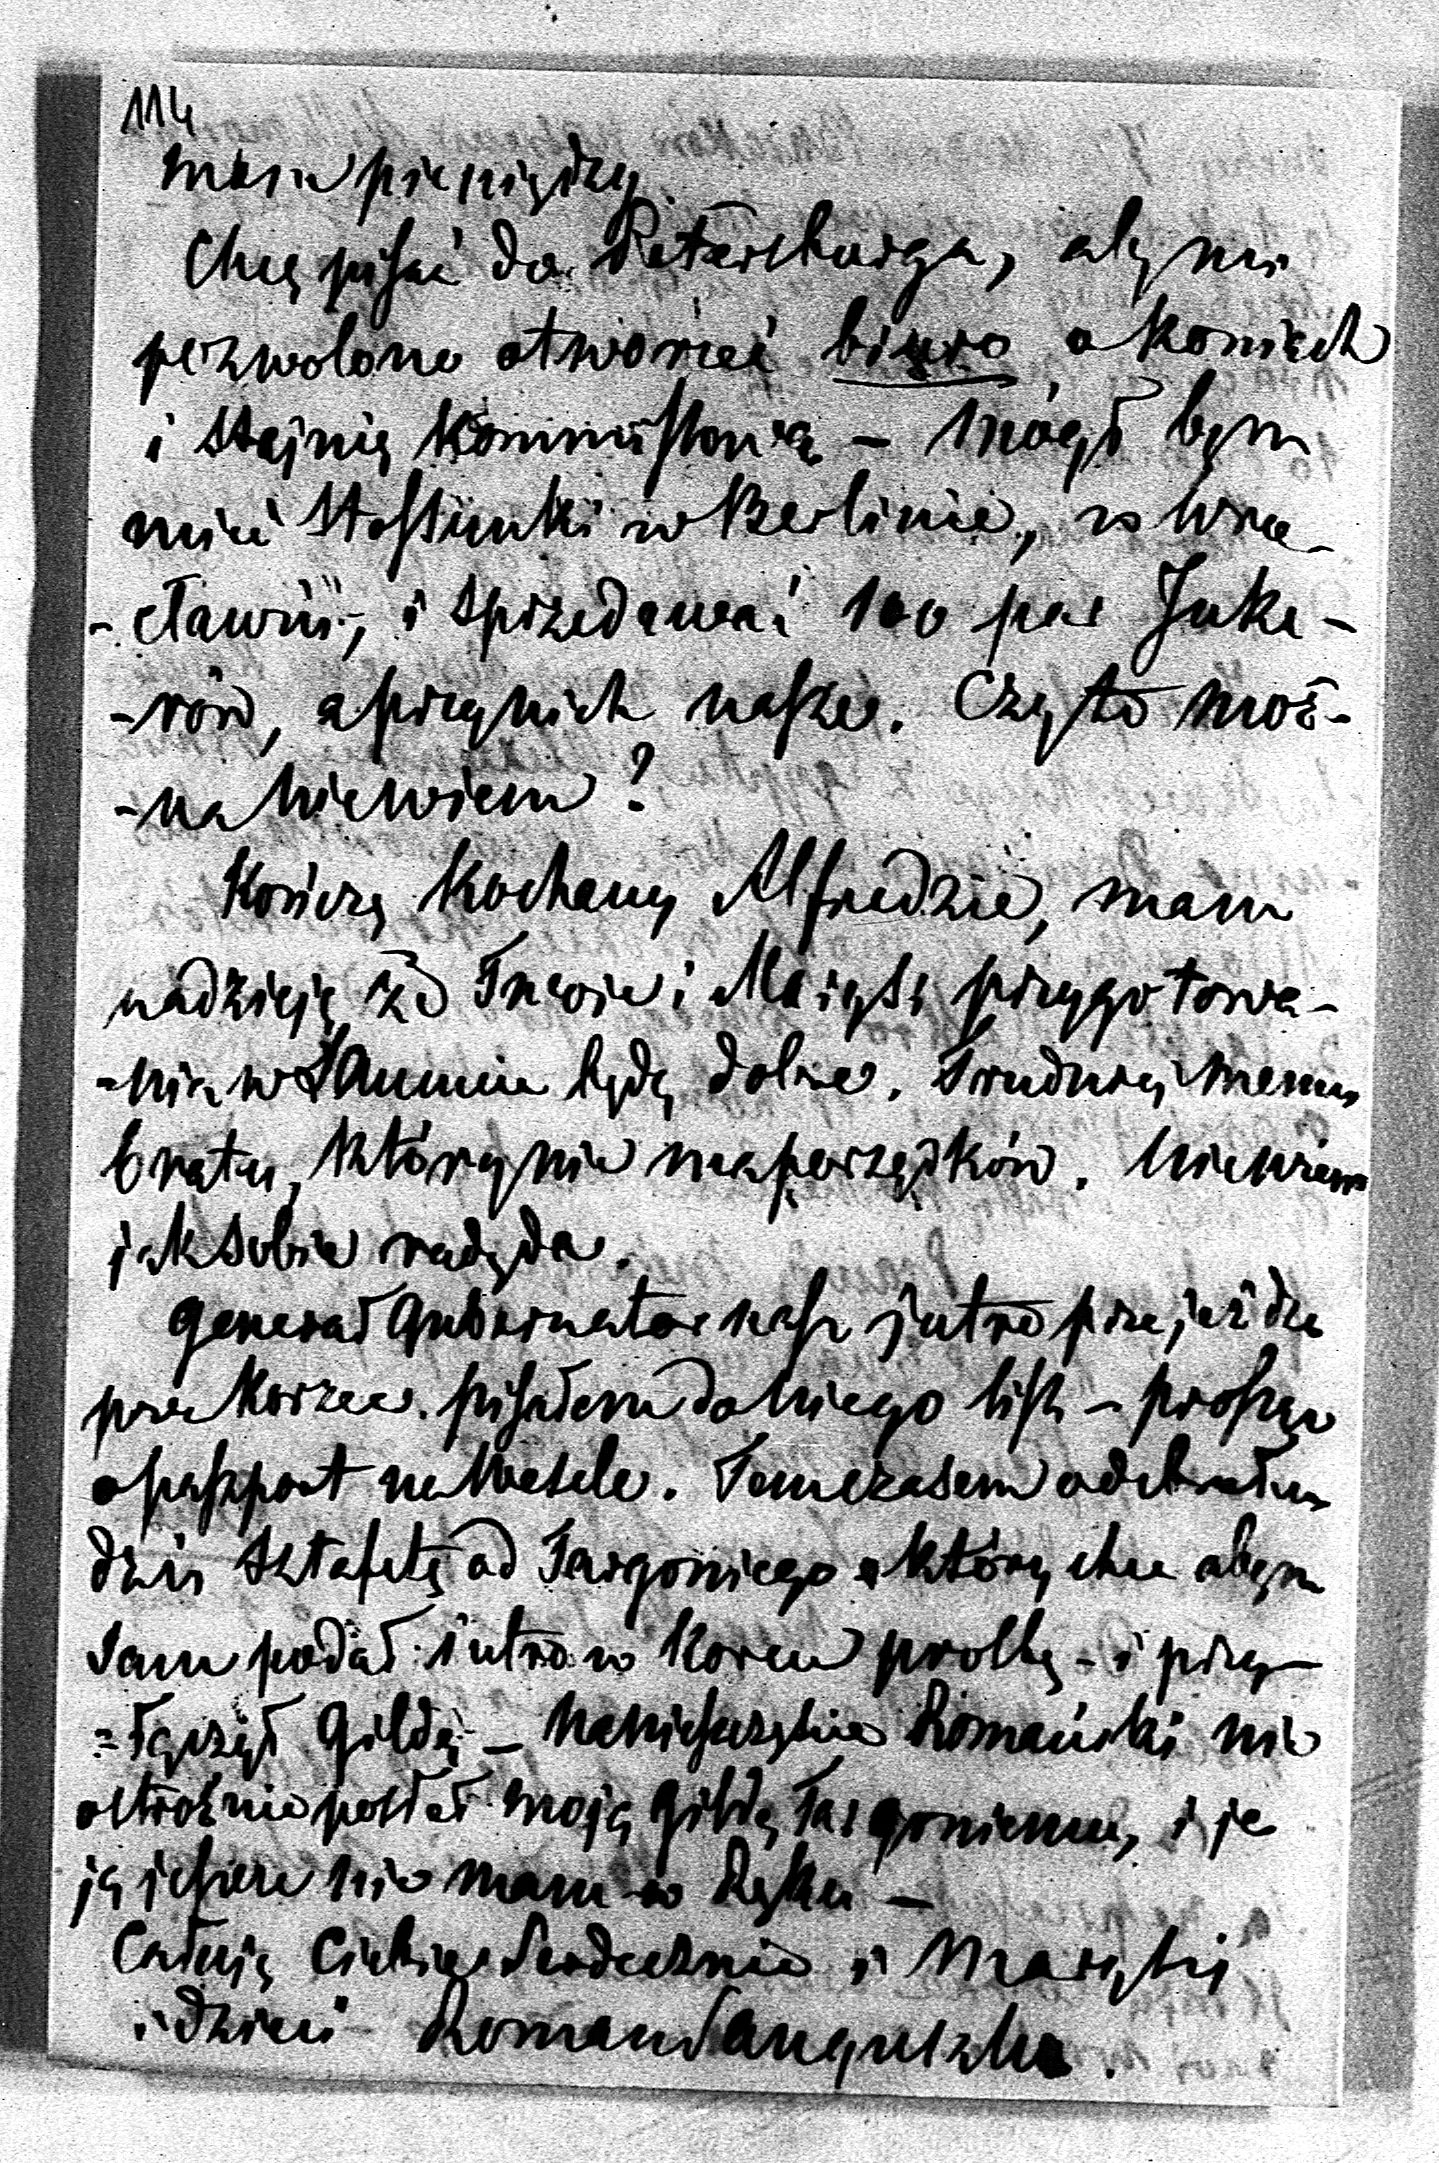 114
masie pieniędzy
Chcę pisać do Petersburga, aby mi
pozwolono otworzić biuro o koniach
i stajnię kommissową – mógł bym
mieć stossunki w Berlinie, w Wro-
-cławiu, i sprzedawać 100 par Juke-
-rów, a przy nich nasze. Czy to moż-
-na niewiem?
Kończę kochany Alfredzie, mam
nadzieję że Twoie i Marysi przygotowa-
-nia w będą dobre. Trudniej memu
bratu, który nie ma porządków. Niewiem
jak sobie rady da.
Generał Gubernator nasz jutro przejeżdża
przez Korzec. pisałem do niego list – prosząc
o paszport na Wesele. Tomczasem odebrałem
dziś sztafetę od Targoniego który chce abym
sam podał jutro w Korcu prośbę – i przy-
=łączył Gildę – na nieszczęście Romański nie
ostrożnie posłał moją Gildę Targoniemu, i ja
ją jeszcze nie mam w ręku –
Całuję Ciebie serdecznie i Marysię
i dzieci Roman Sanguszko.